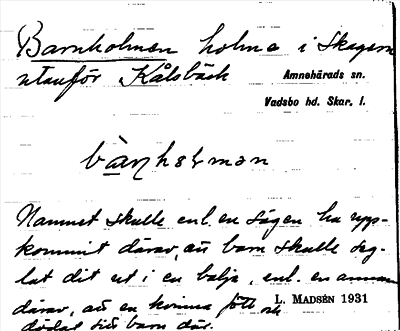 Barnholmen holme i Skagern
utanför Kålsbäck
Amnehärads sn.
Vadsbo hd. Skar. l.
bàrn̥hɔlmən
Namnet skulle enl. en sägen ha upp-
kommit därav, att barn skulle seg-
lat dit ut i en balja, enl. en annan
därav, att en kvinna fött och
L. MADSÉN 1931
dödat sitt barn där.